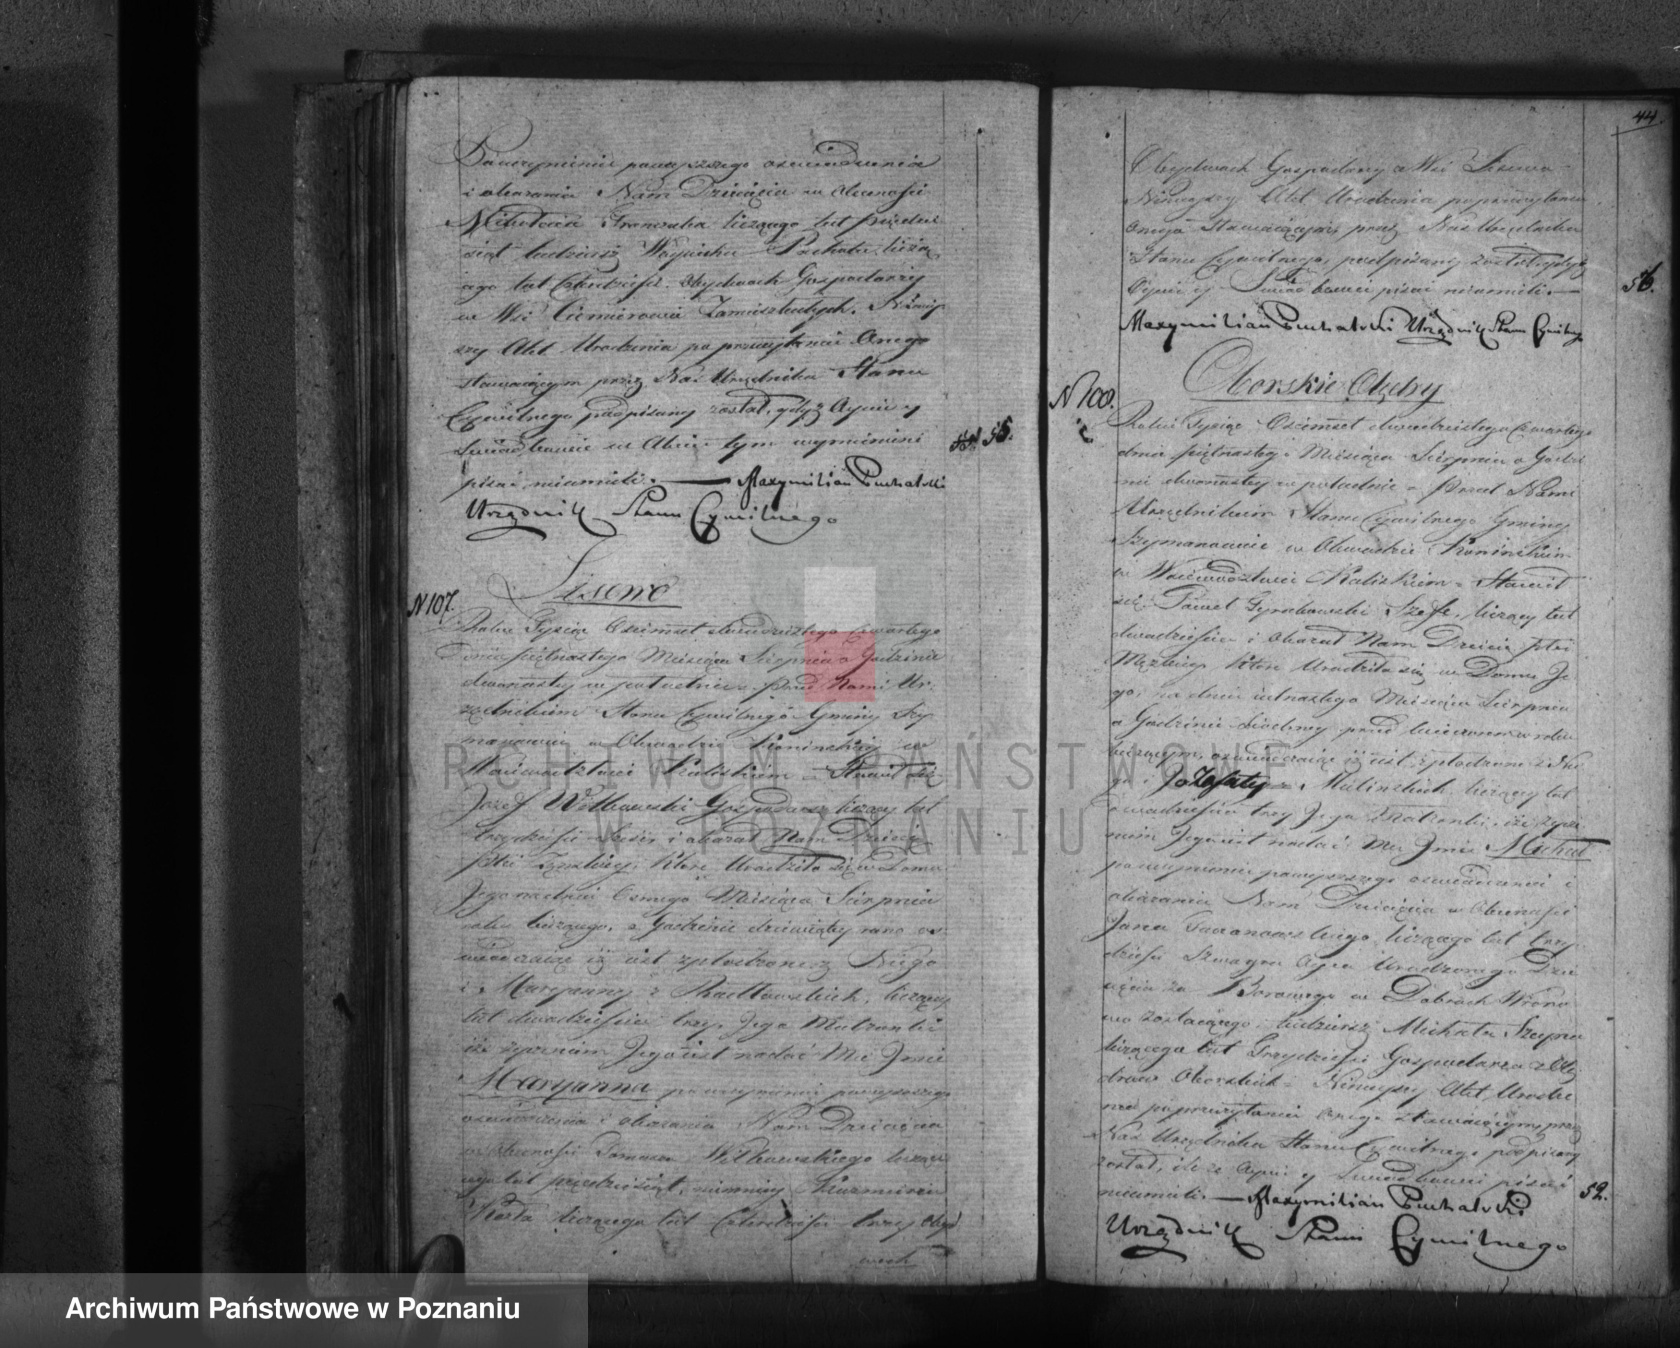 i okazaniu Nam Dziecięcia w Obecności
Franciszka liczącego lat pięćdzie
siąt tudzież Woyciecha liczą
cego lat Czterdzieści Obydwoch Gospodarzy
we Wsi Ciemierowie Zamieszkałych. Niniey
szy Akt Urodzenia po przeczytaniu Onego
stawaiącym przez Nas Urzędnika Stanu
Cywilnego podpisany został, gdyż Oyciec y
Swiadkowie w Akcie tym wymienieni
pisać nieumieli. — Maxymilian Puchalski
Urzędnik Stanu Cywilnego
55.
N 107.
Lisewo
Roku Tysiąc Osimset dwudziestego czwartego
Dnia piętnastego Miesiąca Sierpnia o Godzinie
dwunastey w południe. przed Nami Ur-
zędnikiem Stanu Cywilnego Gminy Szy
manowice w Obwodzie Konińskiey w
Woiewodztwie Kaliskiem – Stawił się
Jozef Witkowski Gospodarz liczący lat
trzydzieści sześć i okazał Nam Dziecię
płci Zeńskiey, które Urodziło się w Domu
Jego na dniu Osmego Miesiąca Sierpnia
roku bieżącego, o Godzinie dziewiątey rano os-
wiadczaiąc iż iest spłodzone z Niego
i Maryanny z Radkowskich, liczącey
lat dwadzieścia trzy Jego Małżonki
iż życzeniem Jego iest nadać Mu Imie
Maryanna po uczynieniu powyższego
oswiadczenia i okazaniu Nam Dziecięcia
w Obecności Tomasza Witkowskiego liczące
go lat pięcdziesiąt, niemniey Kazmierza
Kosta liczącego lat Czterdzieści trzy Obyd
woch
44
Obydwoch Gospodarzy z Wsi Lisewa
Ninieyszy Akt Urodzenia po przeczytaniu
onego Stawaiącym, przez Nas Urzędnika
Stanu Cywilnego, podpisany został, gdyż
Oyciec y Swiadkowie pisać nieumieli. —
56.
Maxymilian Puchalski Urzędnik Stanu Cywilnego
Oborskie Olędry
N 108.
Roku Tysiąc Osimset dwudziestego Czwartego
dnia piętnastego Miesiąca Sierpnia o Godzi
nie dwunastey w południe – Przed Nami
Urzędnikiem Stanu Cywilnego Gminy
Szymanowice w Obwodzie Konińskim
w Woiewodztwie Kaliskiem – Stawił
się Paweł liczący lat
dwadzieścia i okazał Nam Dziecię płci
Męzkiey które Urodziło się w Domu Je
go, na dniu Miesiąca Sierpnia
o Godzinie siodmey przed wieczorem w roku
bieżącym, oswiadczaiąc iż iest spłodzone z Nie
go i Jozefaty z Malinskich liczącey lat
dwadzieścia trzy Jego Małżonki, iż życze
niem Jego iest nadać Mu Imie Michał
po uczynieniu powyższego oswiadczenia i
okazaniu Nam Dziecięcia w Obecności
Jana liczącego lat trzy
dzieści Szwagra Oyca Urodzonego Dzie
cięcia za Borowego w Dobrach
zostaiącego, tudzież Michała
liczącego lat Trzydzieści Gospodarza z Olę
drow Oborskich – Ninieyszy Akt Urodze
nia po przeczytaniu onego stawaiącym przez
Nas Urzędnika Stanu Cywilnego podpisany
został, ile że Oyciec y Swiadkowie pisać
nieumieli. — Maxymilian Puchalski
59.
Urzędnik Stanu Cywilnego
ARCHIWUM PAŃSTWOWE
W POZNANIU
Archiwum Państwowe w Poznaniu